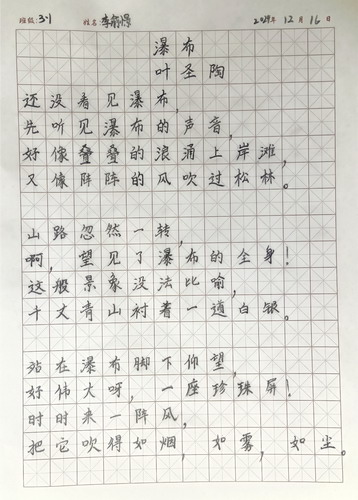 班级：3.1 姓名 李 2019年 12月 16日
瀑布
叶圣陶
还没看见瀑布，
先听见瀑布的声音，
好像叠叠的浪涌上岸滩，
又像阵阵的风吹过松林。
山路忽然一转，
啊，望见了瀑布的全身！
这般景象没法比喻，
千丈青山衬着一道白银。
站在瀑布脚下仰望，
好伟大呀，一座珍珠屏！
时时来一阵风，
把它吹得如烟，如雾，如尘。